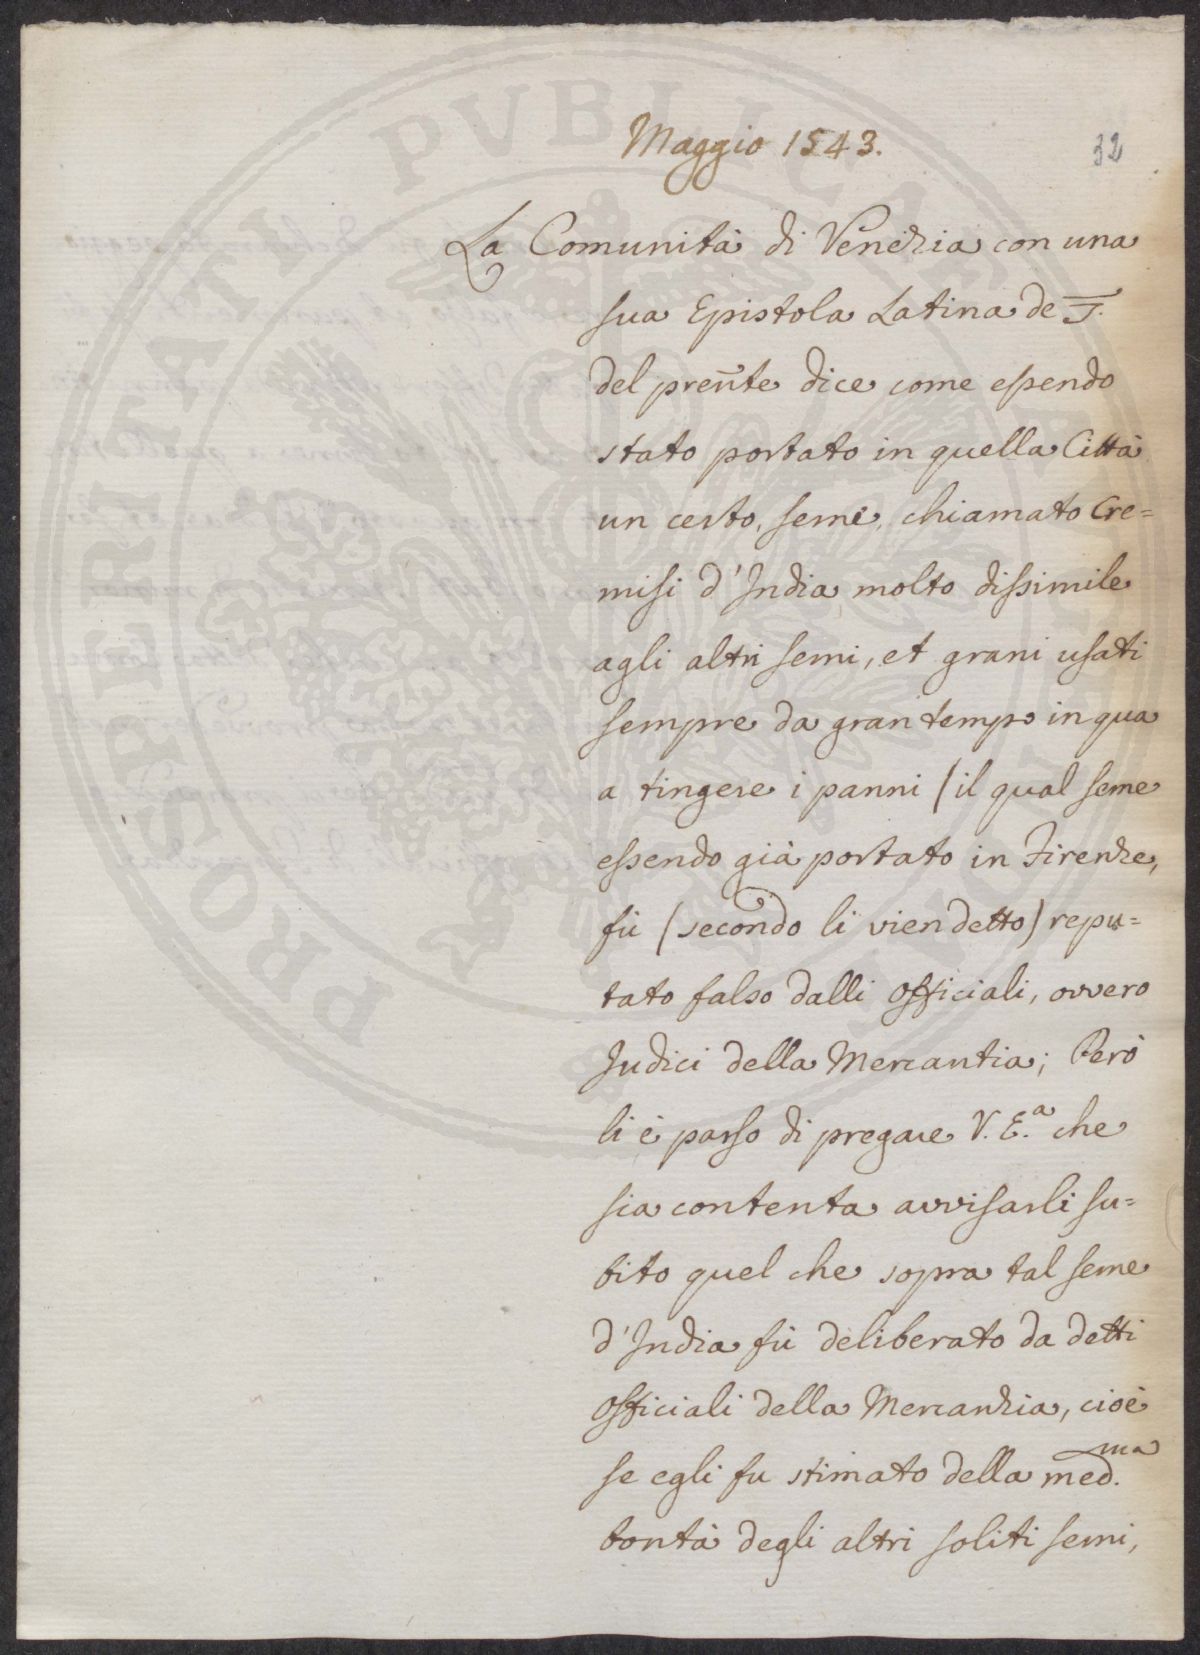 Maggio 1543.
32
La Comunità di Venezia con una
sua Epistola Latina de J.
del preñte dice come essendo
stato portato in quella Città
un certo, seme, chiamato Cre=
misi d'India molto dissimile
agli altri semi, et grani usati
sempre da gran tempo in qua
a tingere i panni / il qual seme
essendo già portato in Firenze,
fù (secondo li vien detto) repu=
tato falso dalli officiali, ovvero
Judici della Mercantia; Però
li è parso di pregare V. E.ª che
sia contenta avvisarli su=
bito quel che sopra tal seme
d'India fù deliberato da detti
officiali della Mercanzia, cioè
se egli fu stimato della med.ma
bontà degli altri soliti semi,
PROSPERITATI PVBLICAE